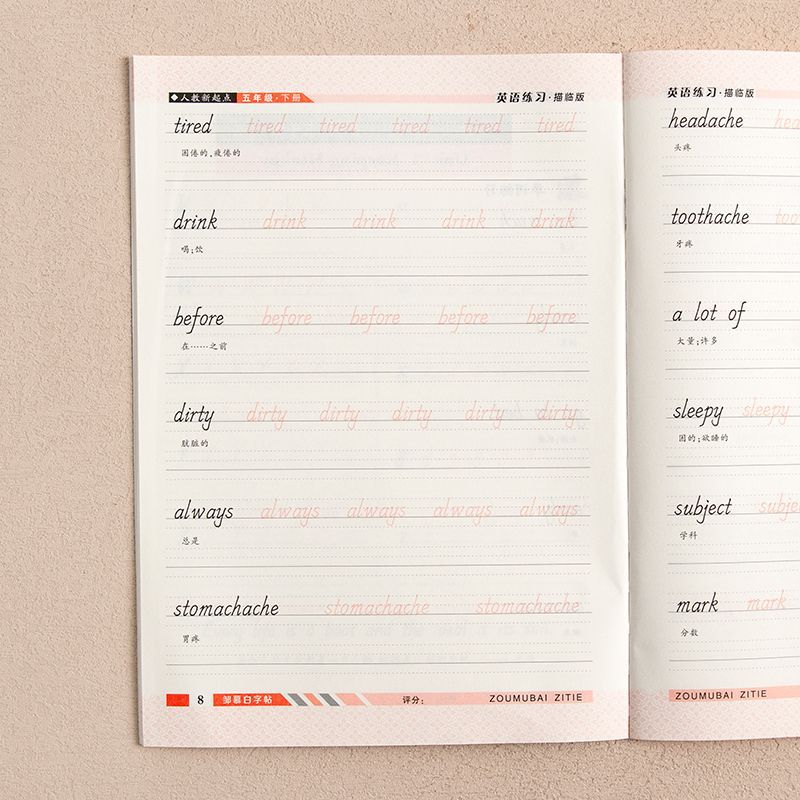 ◆人教新起点 五年级·下册 英语练习·描临版
tired tired tired tired tired tired
困倦的，疲倦的
drink drink drink drink drink
喝；饮
before before before before before
在……之前
dirty dirty dirty dirty dirty dirty
肮脏的
always always always always always
总是
stomachache stomachache stomachache
胃疼
8 邹慕白字帖 评分： ZOUMUBAI ZITIE
英语练习·描临版
headache hea
头疼
toothache too
牙疼
a lot of
大量；许多
sleepy sleepy
困的；欲睡的
subject subje
学科
mark mark
分数
ZOUMUBAI ZITIE